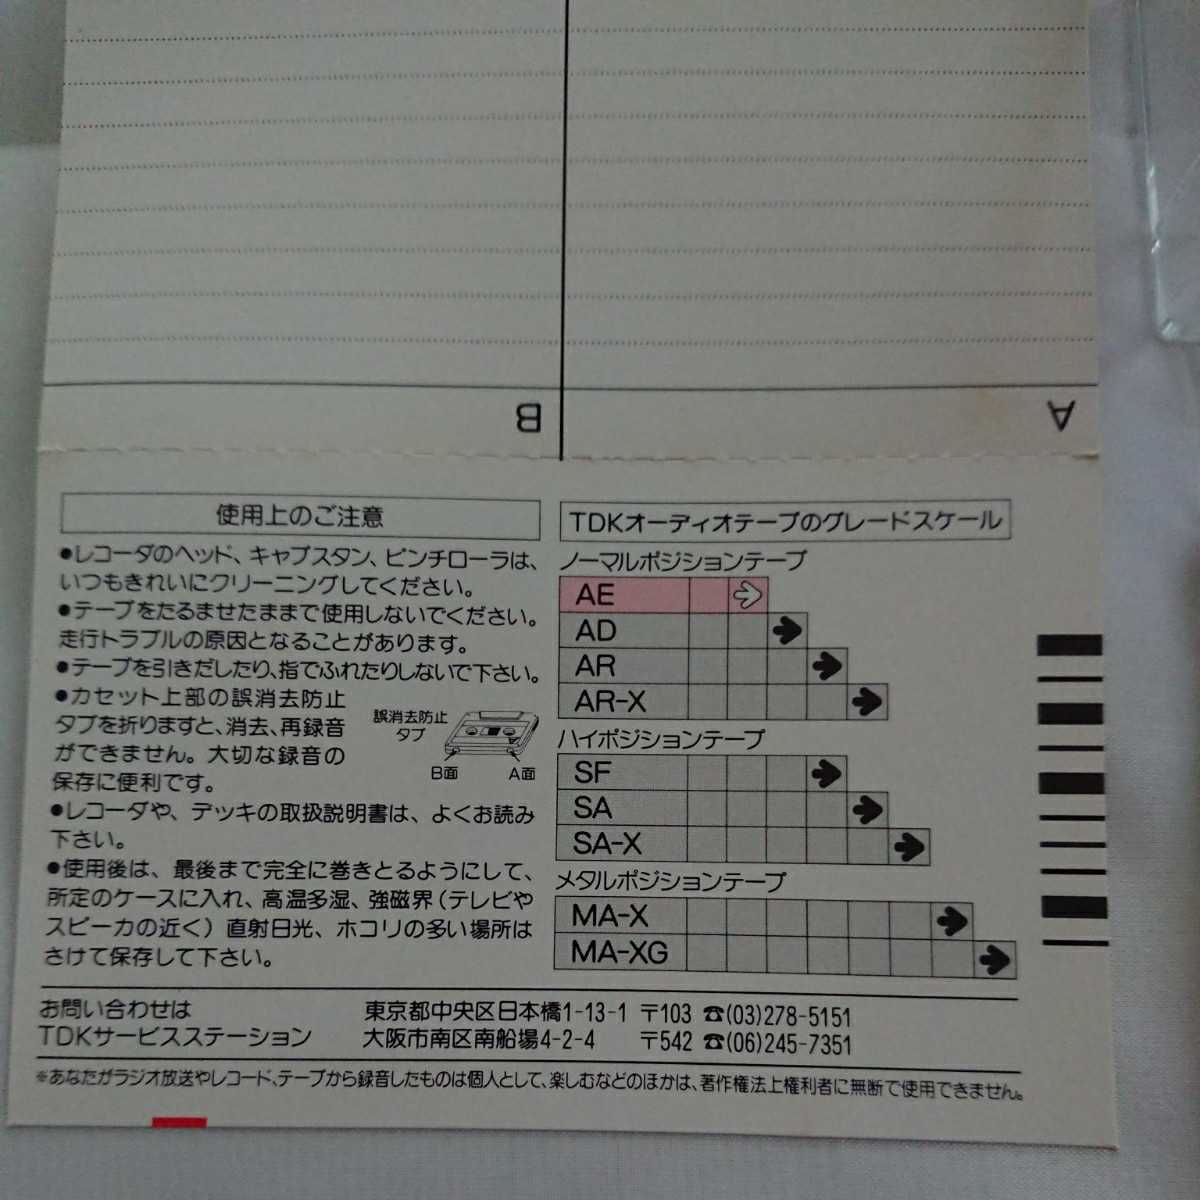 B
A
使用上のご注意
●レコーダのヘッド、キャプスタン、ピンチローラは、
いつもきれいにクリーニングしてください。
●テープをたるませたままで使用しないでください。
走行トラブルの原因となることがあります。
●テープを引きだしたり、指でふれたりしないで下さい。
●カセット上部の誤消去防止
タブを折りますと、消去、再録音
ができません。大切な録音の
保存に便利です。
誤消去防止
タブ
B面
A面
●レコーダや、デッキの取扱説明書は、よくお読み
下さい。
●使用後は、最後まで完全に巻きとるようにして、
所定のケースに入れ、高温多湿、強磁界(テレビや
スピーカの近く)直射日光、ホコリの多い場所は
さけて保存して下さい。
TDKオーディオテープのグレードスケール
ノーマルポジションテープ
AE
AD
AR
AR-X
ハイポジションテープ
SF
SA
SA-X
メタルポジションテープ
MA-X
MA-XG
お問い合わせは
TDKサービスステーション
東京都中央区日本橋1-13-1 〒103 ☎(03)278-5151
大阪市南区南船場4-2-4 〒542 ☎(06)245-7351
※あなたがラジオ放送やレコード、テープから録音したものは個人として、楽しむなどのほかは、著作権法上権利者に無断で使用できません。